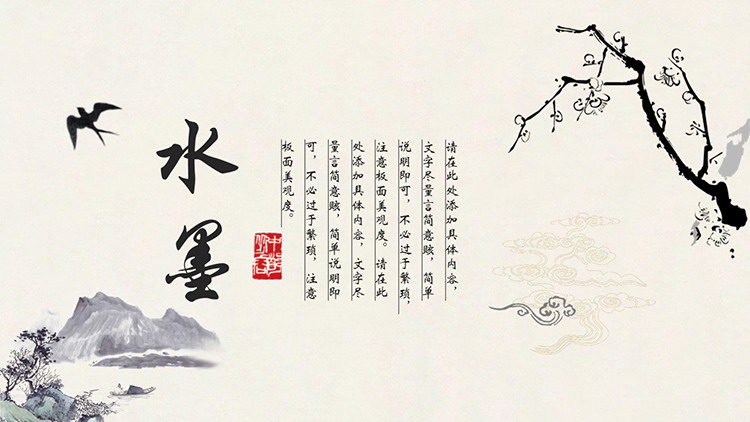 水墨
请在此处添加具体内容，
文字尽量言简意赅，简单
说明即可，不必过于繁琐，
注意板面美观度。请在此
处添加具体内容，文字尽
量言简意赅，简单说明即
可，不必过于繁琐，注意
板面美观度。